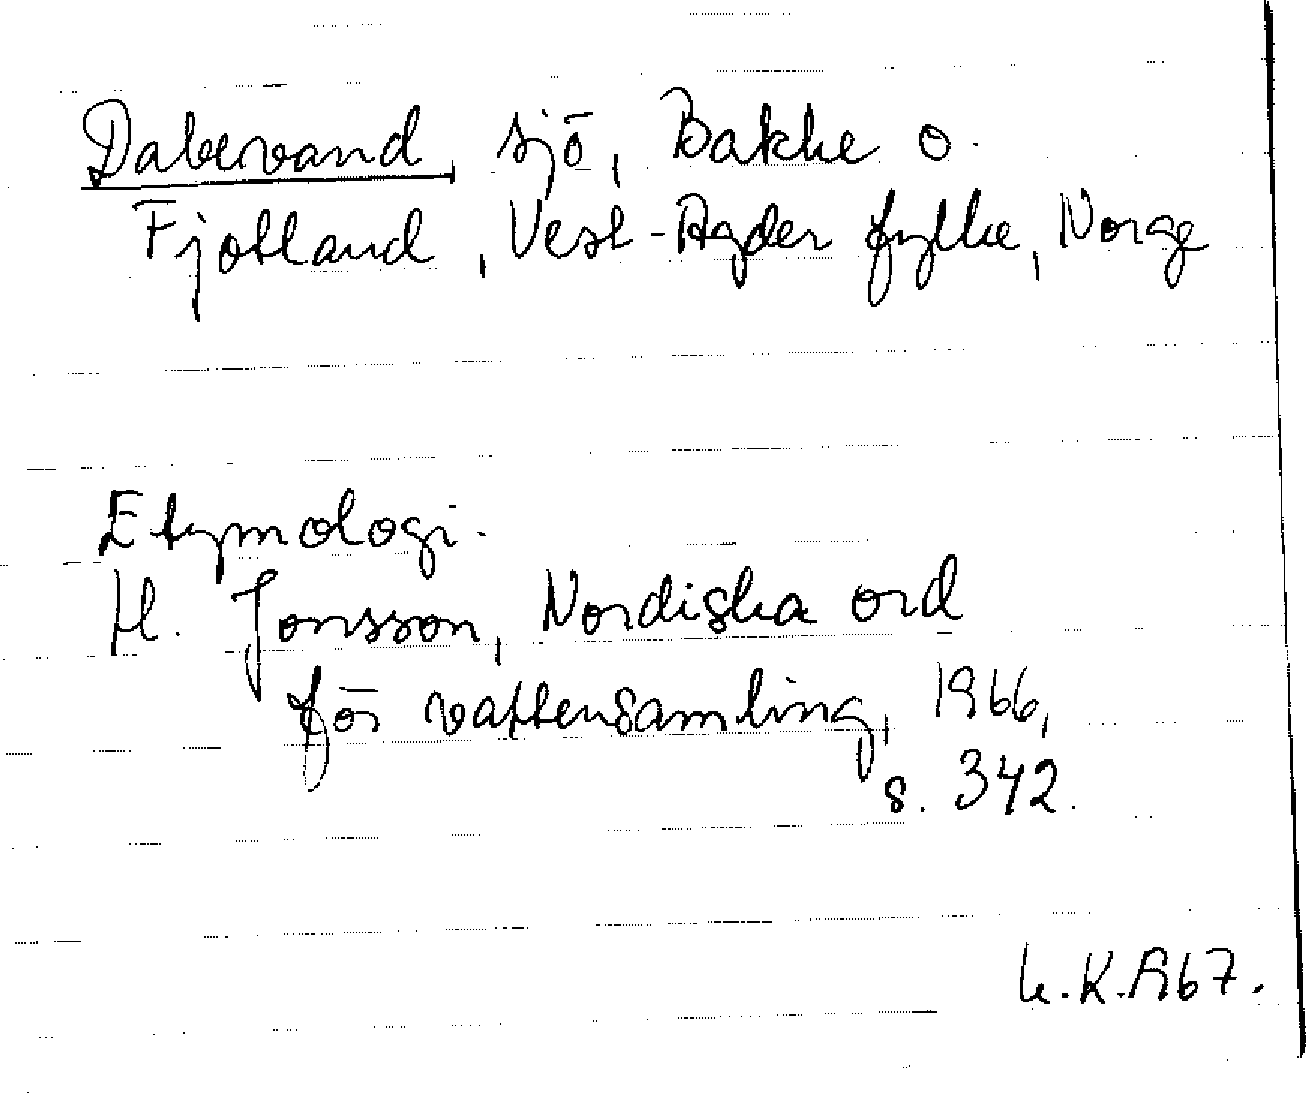 Dabevand, sjö, Bakke o.
Fjotland, Vest-Agder fylke, Norge
Etymologi.
H. Jonsson, Nordiska ord
för vattensamling, 1966,
s. 342.
K. 1967.